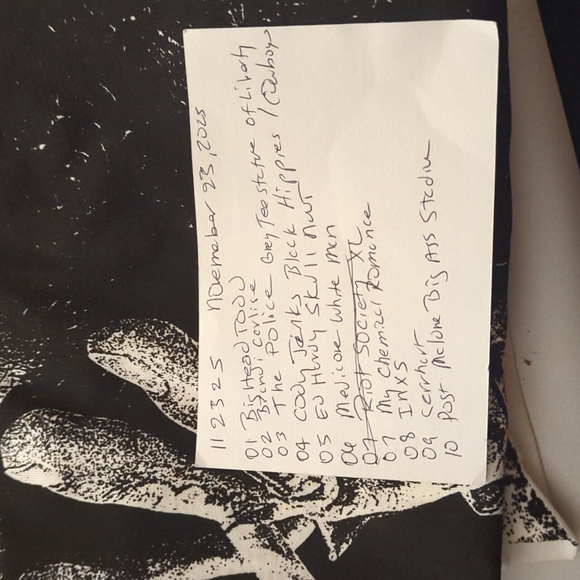 112325 Novemeber 23, 2025
01 Big Head Todd
02 Brandi Carlise
03 The Police Grey Tee Statue of Liberty
04 Cody Jenks Black Hippies / Cowboy
05 Ed Hardy Skull Nut
06 Medicore White Man
07 Riot Society XL
07 My Chemical Romance
08 INXS
09 Carrhart
10 Post Malone Big Ass Stadium